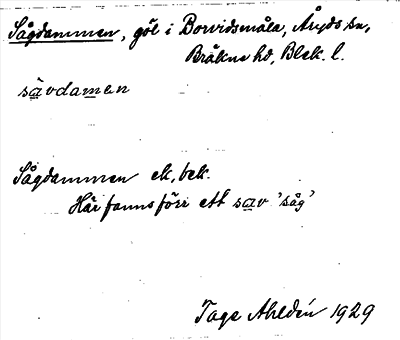 Sågdammen, göl i Borvidsmåla, Åryds sn,
Bräkne hd, Blek. l.
sävdamen
Sågdammen ek, bek.
Här fanns förr ett sav 'såg'
Tage Ahldén 1929